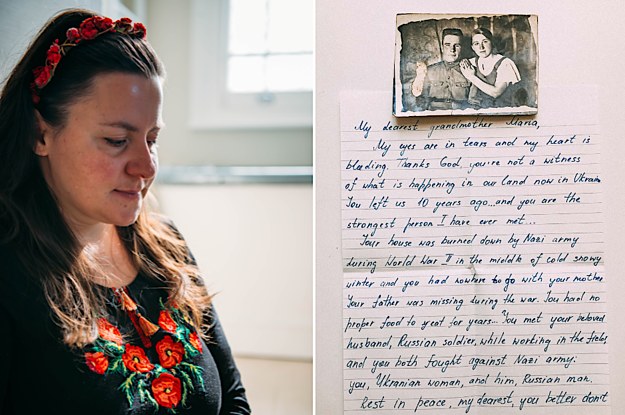 My dearest grandmother Maria,
My eyes are in tears and my heart is
bleeding. Thanks God, you're not a witness
of what is happening in our land now in Ukrain
You left us 10 years ago...and you are the
strongest person I have ever met...
Your house was burned down by Nazi army
during World War II in the middle of cold snowy
winter and you had nowhere to go with your mother.
Your father was missing during the war. You had no
proper food to eat for years... You met your beloved
husband, Russian soldier, while working in the fields
and you both fought against Nazi army:
you, Ukranian woman, and him, Russian man.
Rest in peace, my dearest, you better don't